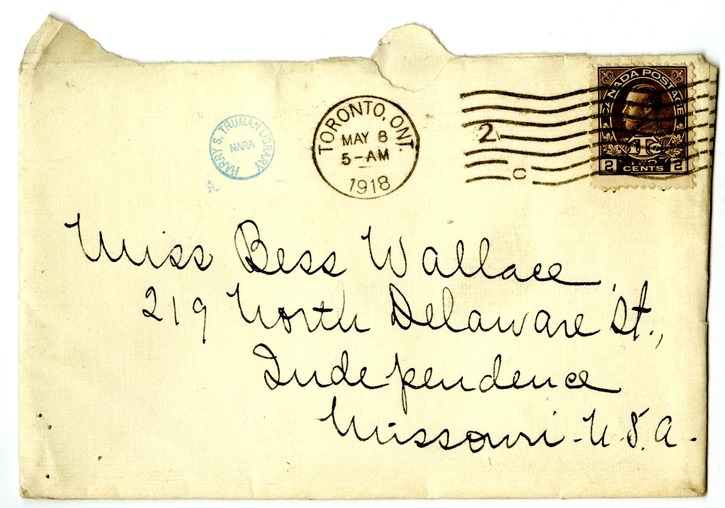 HARRY S. TRUMAN LIBRARY
NARA
TORONTO, ONT.
MAY 8
5-AM
1918
2
C
CANADA POSTAGE
2 CENTS 2
Miss Bess Wallace,
219 North Delaware St.,
Independence
Missouri - U.S.A.